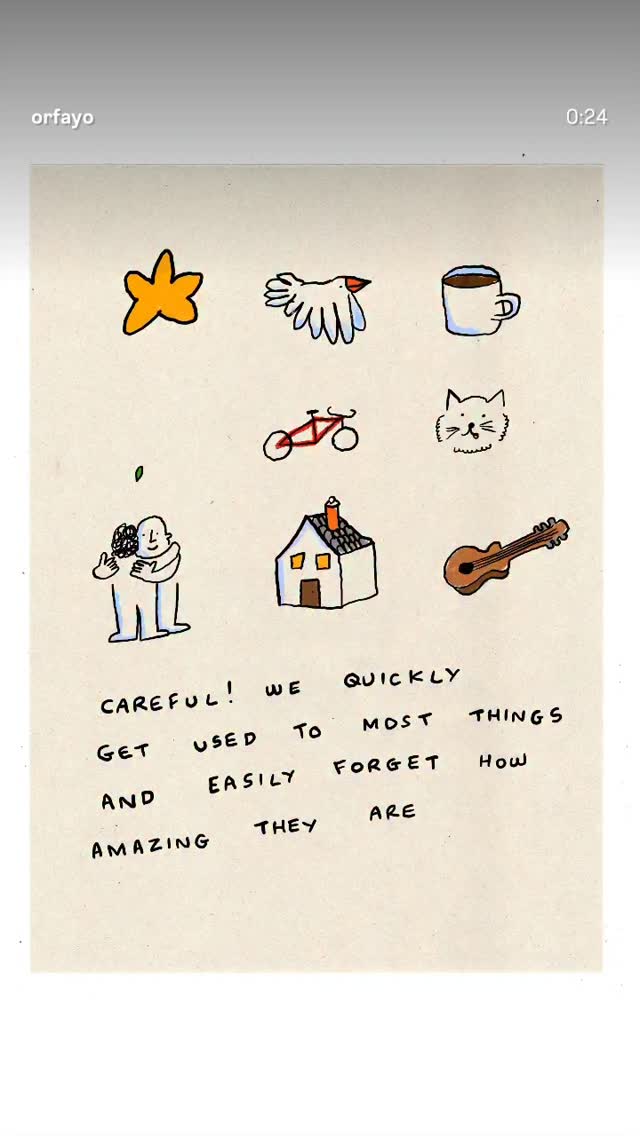 orfayo
0:24
CAREFUL! WE QUICKLY
GET USED TO MOST THINGS
AND EASILY FORGET HOW
AMAZING THEY ARE